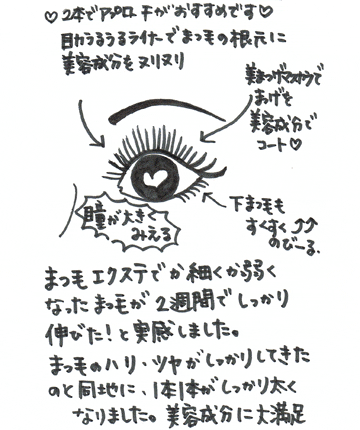 ♡2本でアプローチがおすすめです♡
目力うるうるライナーでまつ毛の根元に
美容成分をヌリヌリ
美まつげマスカラで
まつげを
美容成分で
コート♡
瞳が大きく
みえる
下まつ毛も
すくすく⤴⤴
のびーる。
まつ毛エクステでか細くか弱く
なったまつ毛が2週間でしっかり
伸びた!と実感しました。
まつ毛のハリ・ツヤがしっかりしてきた
のと同地に、1本1本がしっかり太く
なりました。美容成分に大満足